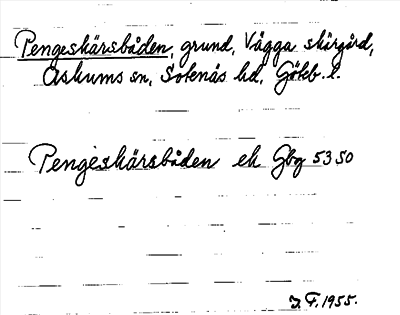 Pengeskärsbåden, grund, Vägga skärgård,
Askums sn, Sotenäs hd, Göteb. l.
Pengeskärsbåden ek Gbg 5350
J. F. 1955.